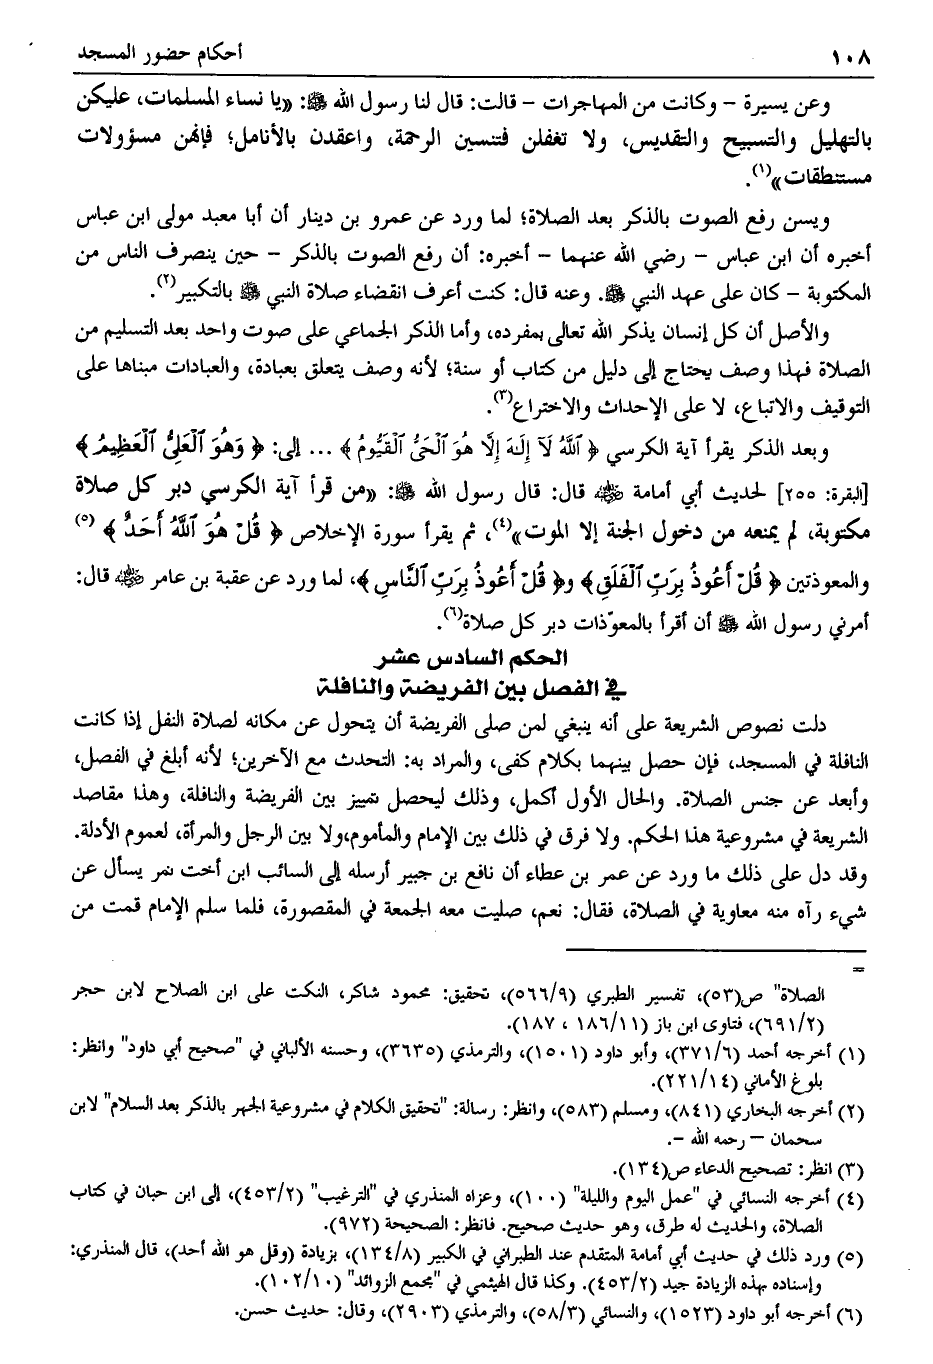 ١٠٨ أحكام حضور المسجد
وعن يسيرة – وكانت من المهاجرات – قالت: قال لنا رسول الله ﷺ: «يا نساء المسلمات، عليكن
بالتهليل والتسبيح والتقديس، ولا تغفلن فتنسين الرحمة، واعقدن بالأنامل؛ فإنهن مسؤولات
مستنطقات»(١).
ويسن رفع الصوت بالذكر بعد الصلاة؛ لما ورد عن عمرو بن دينار أن أبا معبد مولى ابن عباس
أخبره أن ابن عباس – رضي الله عنهما – أخبره: أن رفع الصوت بالذكر – حين ينصرف الناس من
المكتوبة – كان على عهد النبي ﷺ. وعنه قال: كنت أعرف انقضاء صلاة النبي ﷺ بالتكبير(٢).
والأصل أن كل إنسان يذكر الله تعالى بمفرده، وأما الذكر الجماعي على صوت واحد بعد التسليم من
الصلاة فهذا وصف يحتاج إلى دليل من كتاب أو سنة؛ لأنه وصف يتعلق بعبادة، والعبادات مبناها على
التوقيف والاتباع، لا على الإحداث والاختراع(٣).
وبعد الذكر يقرأ آية الكرسي ﴿ ٱللَّهُ لَآ إِلَٰهَ إِلَّا هُوَ ٱلْحَىُّ ٱلْقَيُّومُ ﴾ ... إلى: ﴿ وَهُوَ ٱلْعَلِىُّ ٱلْعَظِيمُ ﴾
[البقرة: ٢٥٥] لحديث أبي أمامة ﷺ قال: قال رسول الله ﷺ: «من قرأ آية الكرسي دبر كل صلاة
مكتوبة، لم يمنعه من دخول الجنة إلا الموت»(٤)، ثم يقرأ سورة الإخلاص ﴿ قُلْ هُوَ ٱللَّهُ أَحَدٌ ﴾ (٥)
والمعوذتين ﴿ قُلْ أَعُوذُ بِرَبِّ ٱلْفَلَقِ ﴾ و﴿ قُلْ أَعُوذُ بِرَبِّ ٱلنَّاسِ ﴾، لما ورد عن عقبة بن عامر ﷺ قال:
أمرني رسول الله ﷺ أن أقرأ بالمعوّذات دبر كل صلاة(٦).
الحكم السادس عشر
في الفصل بين الفريضة والنافلة
دلت نصوص الشريعة على أنه ينبغي لمن صلى الفريضة أن يتحول عن مكانه لصلاة النفل إذا كانت
النافلة في المسجد، فإن حصل بينهما بكلام كفى، والمراد به: التحدث مع الآخرين؛ لأنه أبلغ في الفصل،
وأبعد عن جنس الصلاة. والحال الأول أكمل، وذلك ليحصل تمييز بين الفريضة والنافلة، وهذا مقاصد
الشريعة في مشروعية هذا الحكم. ولا فرق في ذلك بين الإمام والمأموم،ولا بين الرجل والمرأة، لعموم الأدلة.
وقد دل على ذلك ما ورد عن عمر بن عطاء أن نافع بن جبير أرسله إلى السائب ابن أخت نمر يسأل عن
شيء رآه منه معاوية في الصلاة، فقال: نعم، صليت معه الجمعة في المقصورة، فلما سلم الإمام قمت من
=
الصلاة" ص(٥٣)، تفسير الطبري (٥٦٦/٩)، تحقيق: محمود شاكر، النكت على ابن الصلاح لابن حجر
(٦٩١/٢)، فتاوى ابن باز (١٨٦/١١ ، ١٨٧).
(١) أخرجه أحمد (٣٧١/٦)، وأبو داود (١٥٠١)، والترمذي (٣٦٣٥)، وحسنه الألباني في "صحيح أبي داود" وانظر:
بلوغ الأماني (٢٢١/١٤).
(٢) أخرجه البخاري (٨٤١)، ومسلم (٥٨٣)، وانظر: رسالة: "تحقيق الكلام في مشروعية الجهر بالذكر بعد السلام" لابن
سحمان – رحمه الله –.
(٣) انظر: تصحيح الدعاء ص(١٣٤).
(٤) أخرجه النسائي في "عمل اليوم والليلة" (١٠٠)، وعزاه المنذري في "الترغيب" (٤٥٣/٢)، إلى ابن حبان في كتاب
الصلاة، والحديث له طرق، وهو حديث صحيح. فانظر: الصحيحة (٩٧٢).
(٥) ورد ذلك في حديث أبي أمامة المتقدم عند الطبراني في الكبير (١٣٤/٨)، بزيادة (وقل هو الله أحد)، قال المنذري:
وإسناده بهذه الزيادة جيد (٤٥٣/٢). وكذا قال الهيثمي في "مجمع الزوائد" (١٠٢/١٠).
(٦) أخرجه أبو داود (١٥٢٣)، والنسائي (٥٨/٣)، والترمذي (٢٩٠٣)، وقال: حديث حسن.